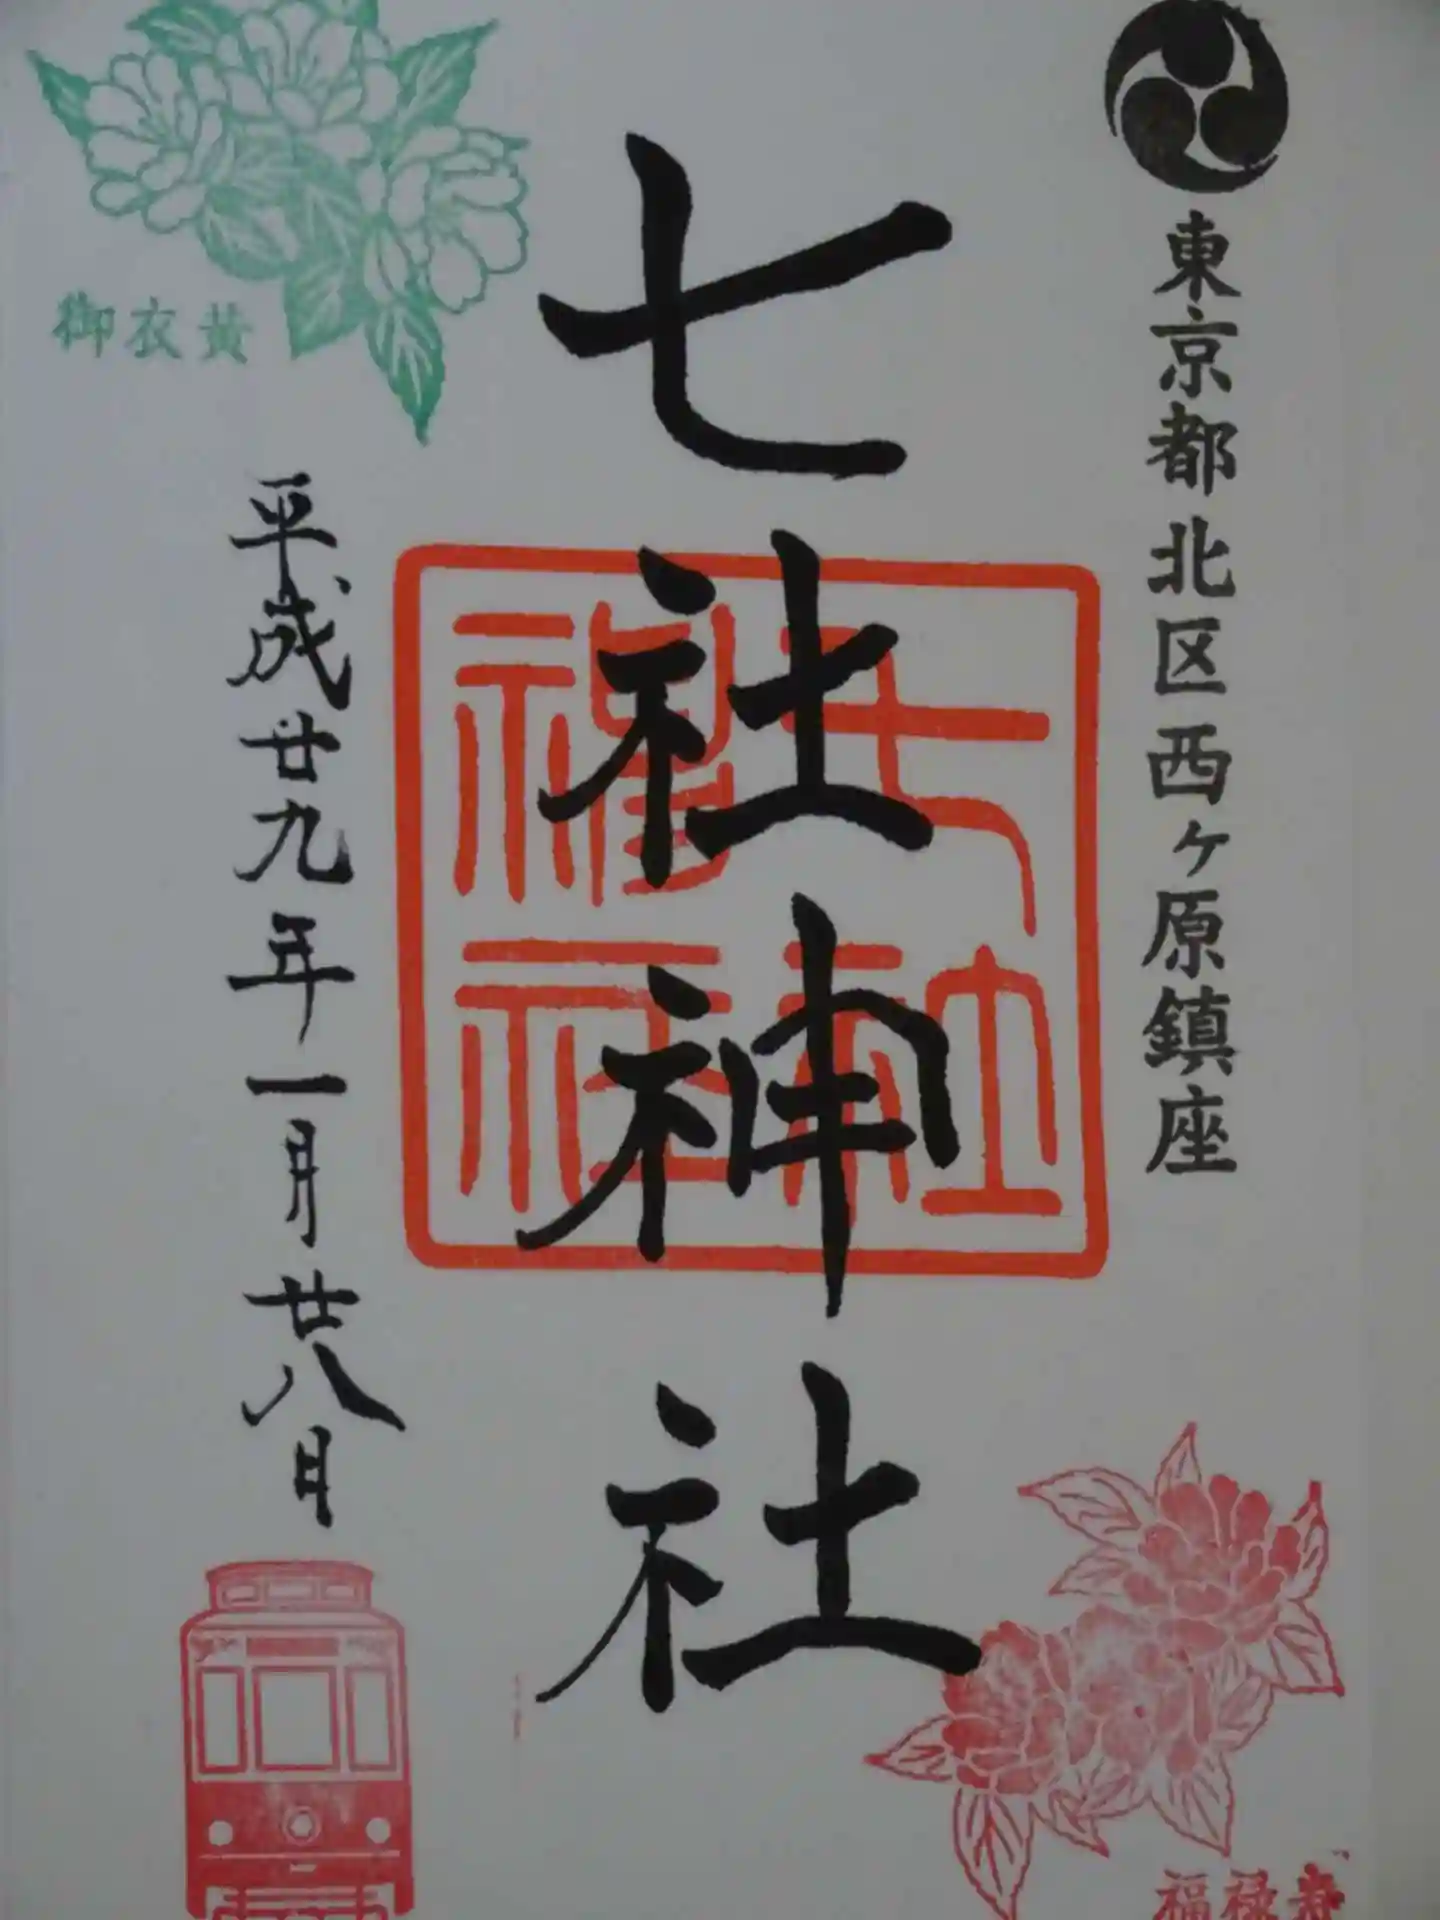 東京都北区西ヶ原鎮座
七社神社
七社
神社
平成廿九年一月廿八日
御衣黄
福禄寿